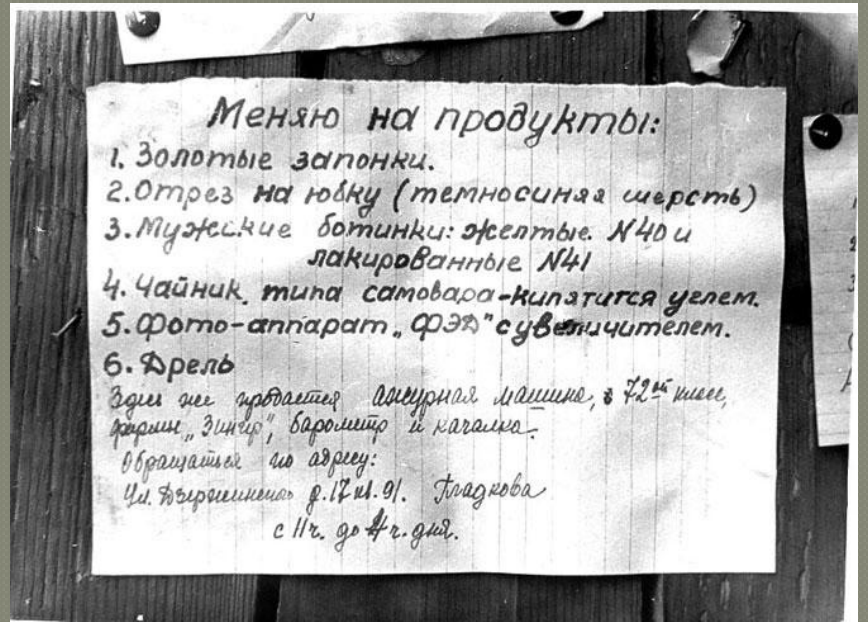 Меняю на продукты:
1. Золотые запонки.
2. Отрез на юбку (темносиняя шерсть)
3. Мужские ботинки: желтые N40 и
лакированные N41
4. Чайник, типа самовара-кипятится углем.
5. Фото-аппарат „ФЭД" с увеличителем.
6. Дрель
Здесь же продается ажурная машина, 72ой класс,
фирмы „Зингер", барометр и качалка.
Обращаться по адресу:
Ул. Дзержинского д.17 кв.91. Гладкова
с 11ч. до 4ч. дня.